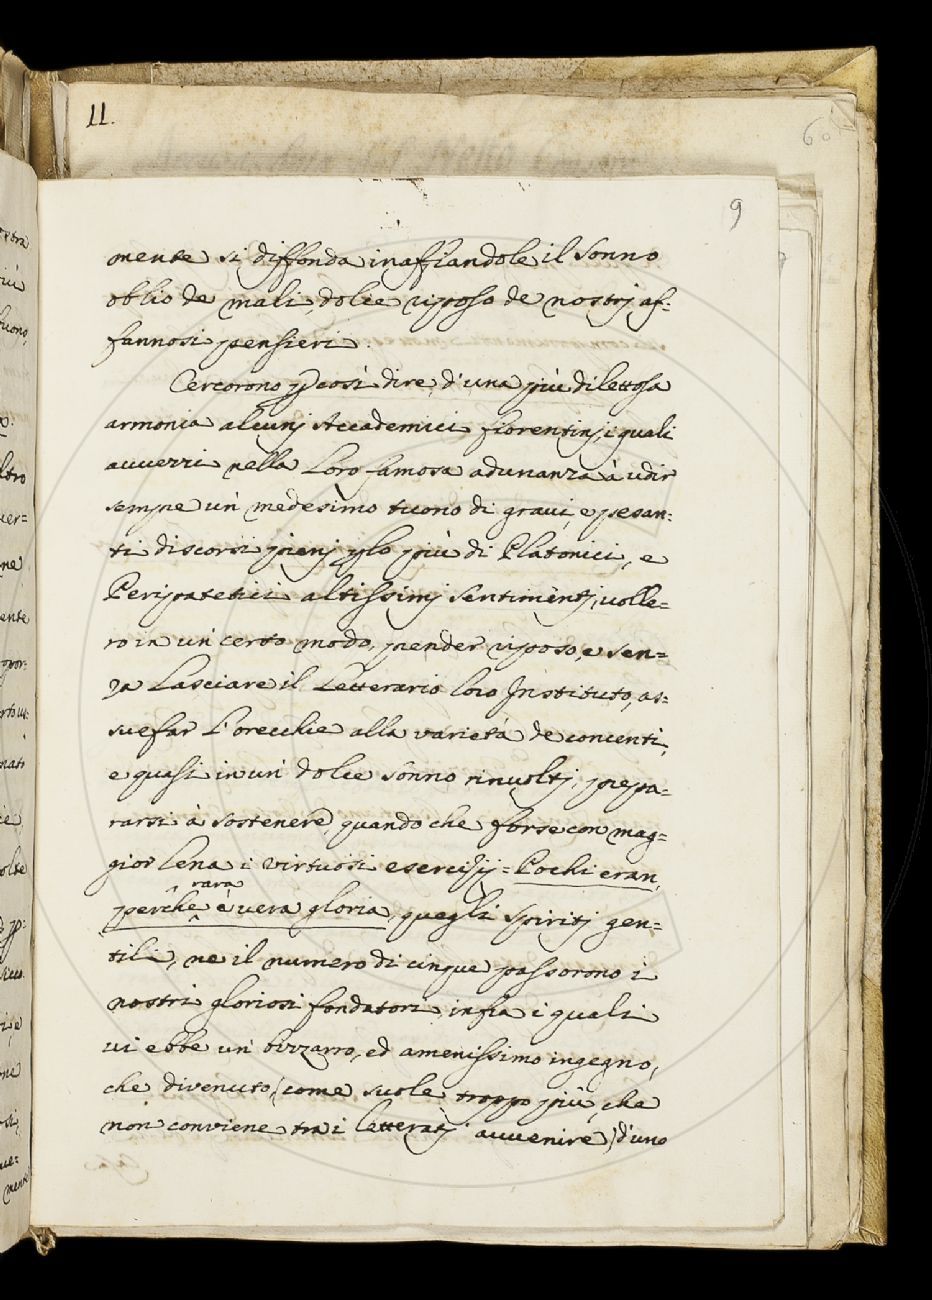 11.
60
9
mente si diffonda inaffiandole il Sonno
oblio de mali, dolce riposo de nostrj af:
fannosi pensieri.
Cercorono p così dire d'una più dilettosa
armonia alcunj Accademici fiorentinj, i quali
auuezzi nella loro famosa adunanza à udir
sempre un medesimo tuono di graui, e pesan:
ti discorsi pienj plo più di Platonici, e
Peripatetici altissimj sentimentj, uolle=
ro in un certo modo, prender riposo, e sen=
za lasciare il letterario loro Instituto, as=
suefar l'orecchie alla varietà de concenti,
e quasi in un dolce sonno rinuoltj, prepa=
rarsi à sostenere, quando che forse con mag=
gior lena i virtuosi esercizij = Pochi eran,
rara
perche è vera gloria, quegli spiritj gen=
tili, ne il numero di cinque passorono i
nostri gloriosi fondatori infra i quali
ui ebbe un bizzarro, ed amenissimo ingegno,
che divenuto, (come suole troppo più, che
non conviene tra i letteratj auuenire) d'uno